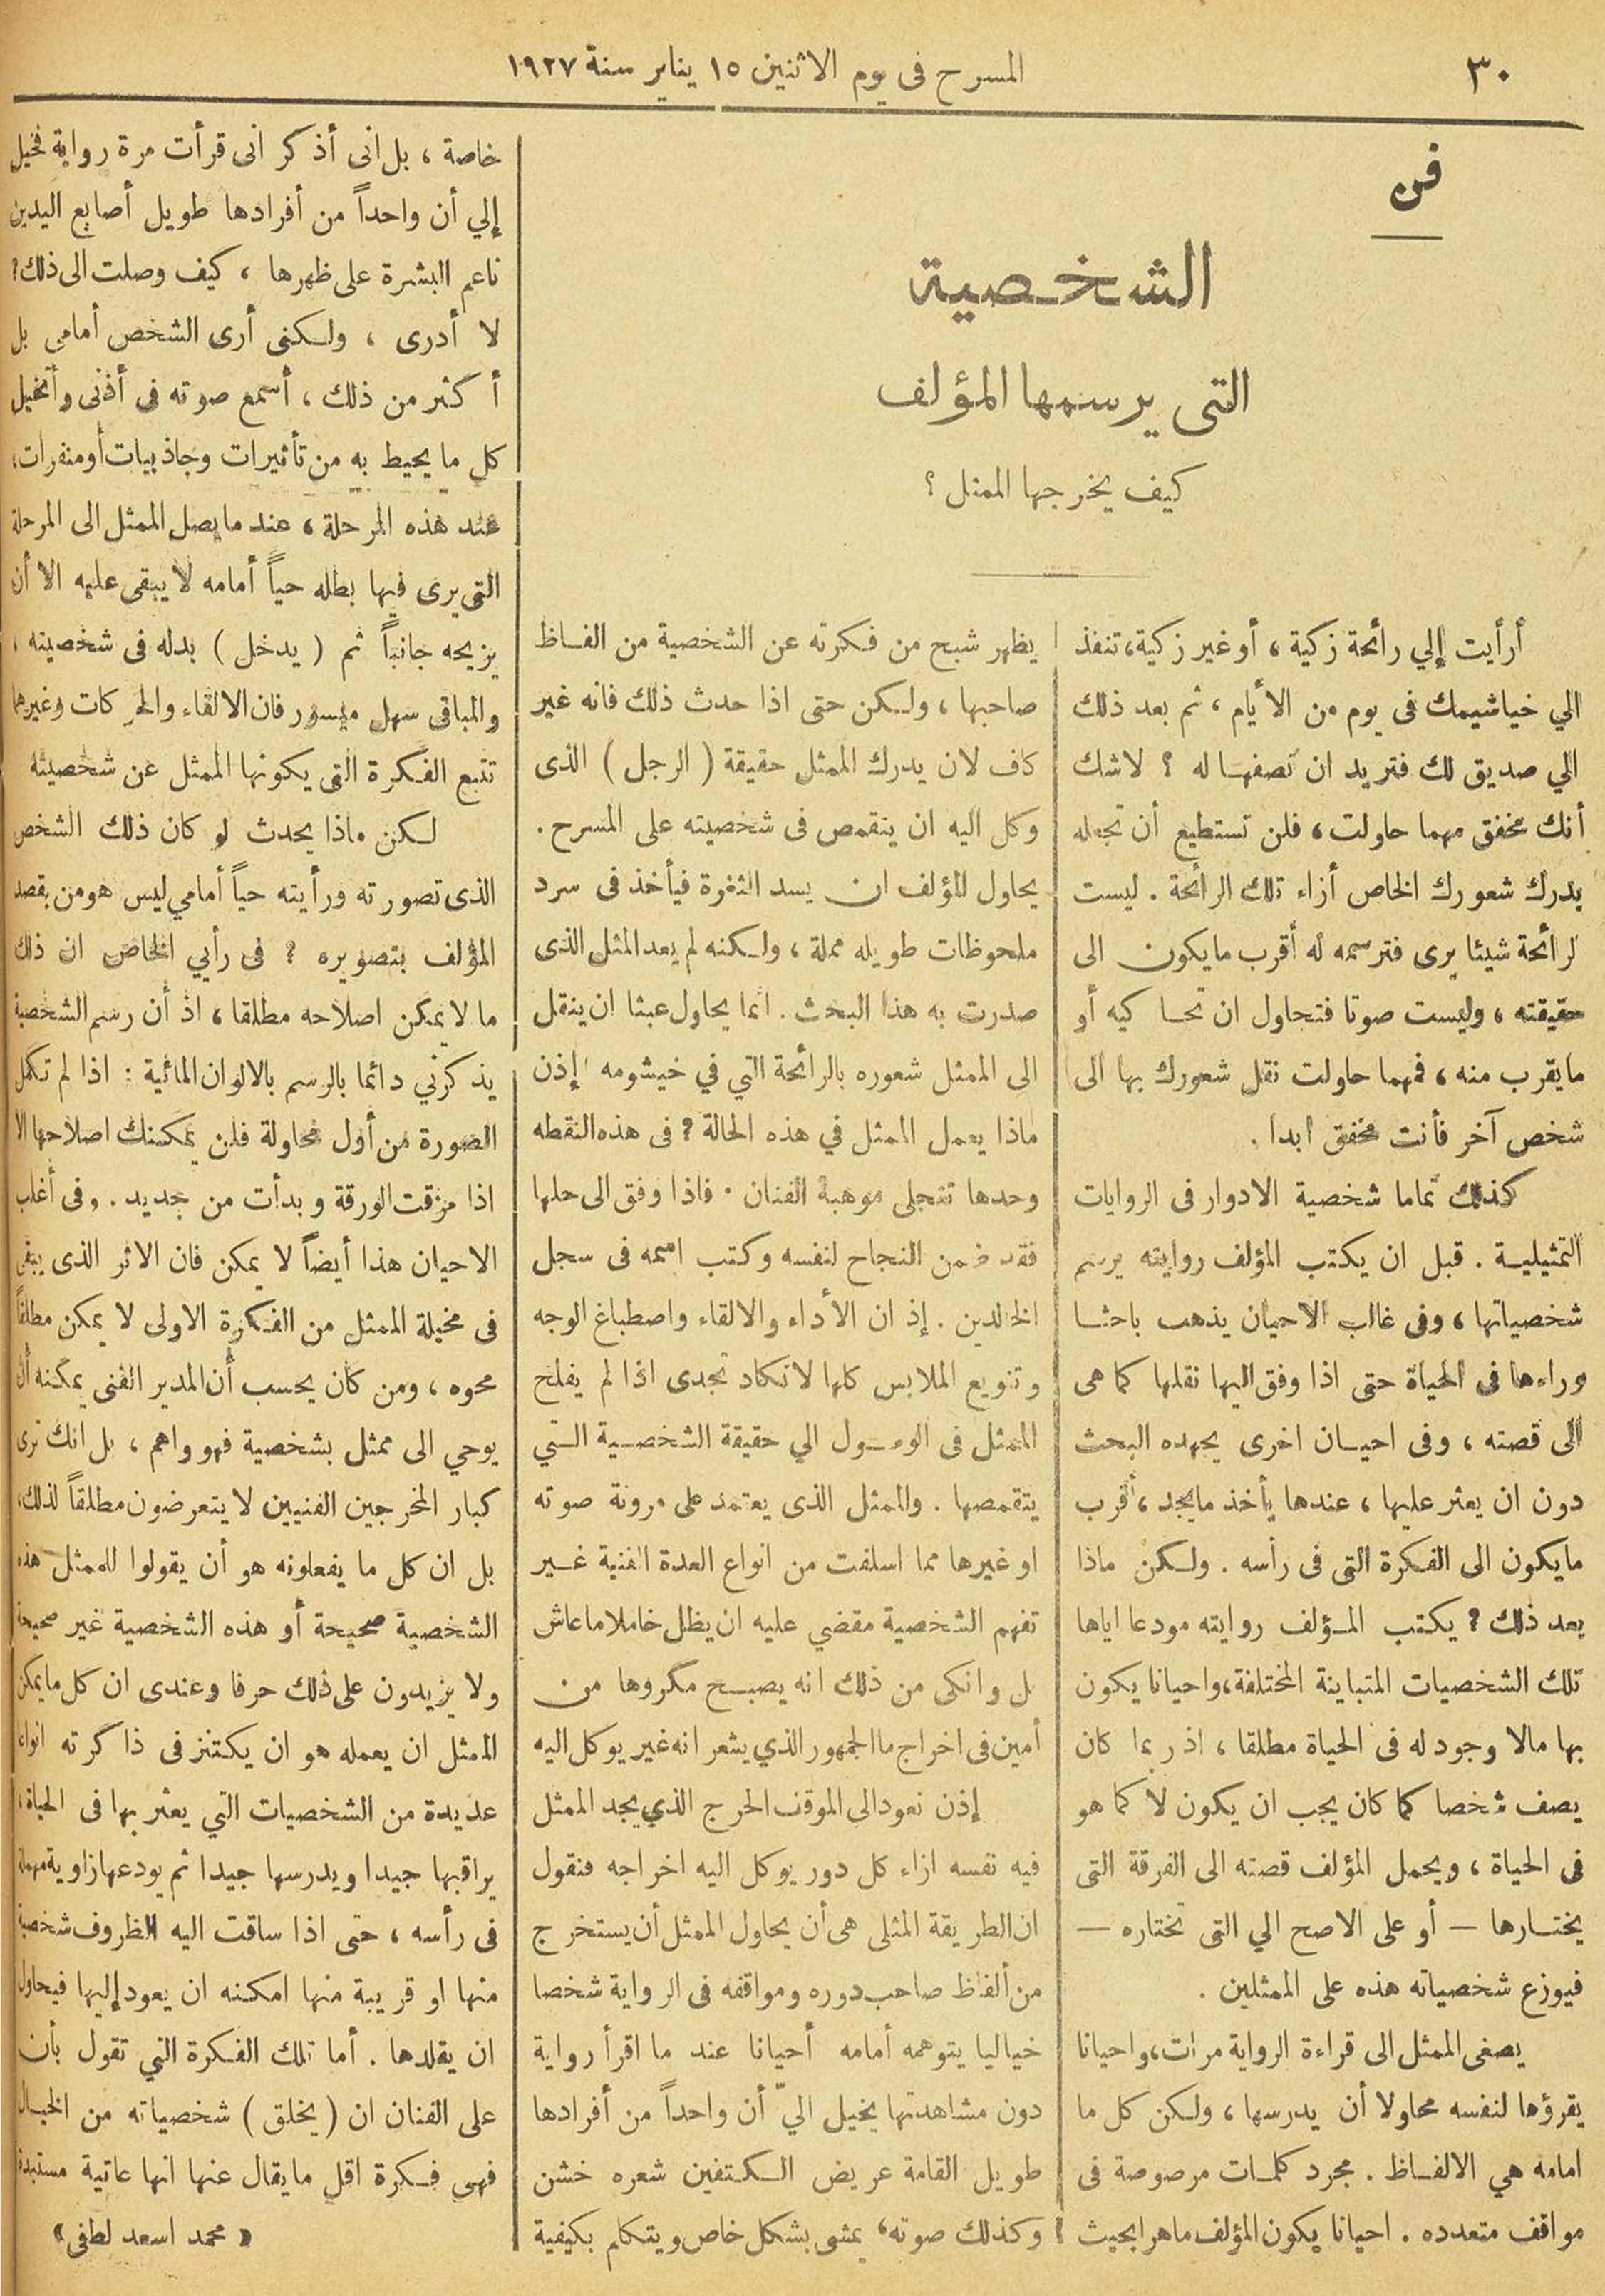 ٣٠
المسرح فى يوم الاثنين ١٥ يناير سنة ١٩٢٧
فن
الشخصية
التى يرسمها المؤلف
كيف يخرجها الممثل ؟
أرأيت إلي رائحة زكية ، أو غير زكية، تنفذ
الي خياشيمك فى يوم من الأيام ، ثم بعد ذلك
الي صديق لك فتريد ان تصفها له ؟ لاشك
أنك مخفق مهما حاولت ، فلن تستطيع أن تجعله
يدرك شعورك الخاص أزاء تلك الرائحة . ليست
لرائحة شيئا يرى فترسمه له أقرب مايكون الى
حقيقته ، وليست صوتا فتحاول ان تحاكيه أو
مايقرب منه ، فمهما حاولت نقل شعورك بها الى
شخص آخر فأنت مخفق ابدا .
كذلك تماما شخصية الادوار فى الروايات
التمثيلية . قبل ان يكتب المؤلف روايته يرسم
شخصياتها ، وفى غالب الاحيان يذهب باحثا
وراءها فى الحياة حتى اذا وفق اليها نقلها كما هى
الى قصته ، وفى احيان اخرى يجهده البحث
دون ان يعثر عليها ، عندها يأخذ مايجد ، أقرب
مايكون الى الفكرة التى فى رأسه . ولكن ماذا
بعد ذلك ؟ يكتب المؤلف روايته مودعا اياها
تلك الشخصيات المتباينة المختلفة، واحيانا يكون
بها مالا وجود له فى الحياة مطلقا ، اذ ربما كان
يصف شخصا كما كان يجب ان يكون لا كما هو
فى الحياة ، ويحمل المؤلف قصته الى الفرقة التى
يختارها — أو على الاصح الي التى تختاره —
فيوزع شخصياته هذه على الممثلين .
يصغى الممثل الى قراءة الرواية مرات، واحيانا
يقرؤها لنفسه محاولا أن يدرسها ، ولكن كل ما
امامه هي الالفاظ . مجرد كلمات مرصوصة فى
مواقف متعدده . احيانا يكون المؤلف ماهرا بحيث
يظهر شبح من فكرته عن الشخصية من الفاظ
صاحبها ، ولكن حتى اذا حدث ذلك فانه غير
كاف لان يدرك الممثل حقيقة ( الرجل ) الذى
وكل اليه ان ينقمص فى شخصيته على المسرح .
يحاول المؤلف ان يسد الثغرة فيأخذ فى سرد
ملحوظات طويله مملة ، ولكنه لم يعد المثل الذى
صدرت به هذا البحث . انما يحاول عبثا ان ينقل
الى الممثل شعوره بالرائحة التي في خيشومه إذن
ماذا يعمل الممثل في هذه الحالة ؟ فى هذه النقطه
وحدها تتجلى موهبة الفنان . فاذا وفق الى حلها
فقد ضمن النجاح لنفسه وكتب اسمه فى سجل
الخالدين . إذ ان الأداء والالقاء واصطباغ الوجه
وتنويع الملابس كلها لا تكاد تجدى اذا لم يفلح
الممثل فى الوصول الي حقيقة الشخصية التي
يتقمصها . والممثل الذى يعتمد على مرونة صوته
او غيرها مما اسلفت من انواع العدة الفنية غير
تفهم الشخصية مقضي عليه ان يظل خاملا ماعاش
بل وانكى من ذلك انه يصبح مكروها من
أمين فى اخراج ما الجمهور الذي يشعر انه غير يوكل اليه
إذن نعود الى الموقف الحرج الذي يجد الممثل
فيه نفسه ازاء كل دور يوكل اليه اخراجه فنقول
ان الطريقة المثلى هى أن يحاول الممثل أن يستخرج
من ألفاظ صاحب دوره ومواقفه فى الرواية شخصا
خياليا يتوهمه أمامه أحيانا عند ما اقرأ رواية
دون مشاهدتها يخيل اليّ أن واحداً من أفرادها
طويل القامة عريض الكتفين شعره خشن
وكذلك صوته، يمشى بشكل خاص ويتكلم بكيفية
خاصة ، بل انى أذكر انى قرأت مرة رواية فخيل
إلي أن واحداً من أفرادها طويل أصابع اليدين
ناعم البشرة على ظهرها ، كيف وصلت الى ذلك ؟
لا أدرى ، ولكنى أرى الشخص أمامى بل
أكثر من ذلك ، أسمع صوته فى أذنى وأتخيل
كل ما يحيط به من تأثيرات وجاذبيات أو منفرات،
عند هذه المرحلة ، عند ما يصل الممثل الى المرحلة
التى يرى فيها بطله حياً أمامه لا يبقى عليه الا أن
يزيحه جانباً ثم ( يدخل ) بدله فى شخصيته ،
والباقى سهل ميسور فان الالقاء والحركات وغيرها
تتبع الفكرة التى يكونها الممثل عن شخصيته
لكن ماذا يحدث لو كان ذلك الشخص
الذى تصورته ورأيته حياً أمامي ليس هو من بقصد
المؤلف بتصويره ؟ فى رأيي الخاص ان ذلك
ما لا يمكن اصلاحه مطلقا ، اذ أن رسم الشخصية
يذكرني دائما بالرسم بالالوان المائية : اذا لم تكمل
الصورة من أول محاولة فلن يمكنك اصلاحها الا
اذا مزقت الورقة وبدأت من جديد . وفى أغلب
الاحيان هذا أيضاً لا يمكن فان الاثر الذى يبقى
فى مخيلة الممثل من الفكرة الاولى لا يمكن مطلقاً
محوه ، ومن كان يحسب أن المدير الفنى يمكنه أن
يوحي الى ممثل بشخصية فهو واهم ، بل انك ترى
كبار المخرجين الفنيين لا يتعرضون مطلقاً لذلك،
بل ان كل ما يفعلونه هو أن يقولوا للممثل هذه
الشخصية صحيحة أو هذه الشخصية غير صحيحة
ولا يزيدون على ذلك حرفا وعندى ان كل مايمكن
الممثل ان يعمله هو ان يكتنز فى ذاكرته انواع
عديدة من الشخصيات التي يعثر بها فى الحياة ،
يراقبها جيدا ويدرسها جيدا ثم يودعها زاوية مهملة
فى رأسه ، حتى اذا ساقت اليه الظروف شخصية
منها او قريبة منها امكنه ان يعود إليها فيحاول
ان يقلدها . أما تلك الفكرة التي تقول بأن
على الفنان ان ( يخلق ) شخصياته من الخيال
فهى فكرة اقل ما يقال عنها انها عاتية مستبدة
« محمد اسعد لطفى »